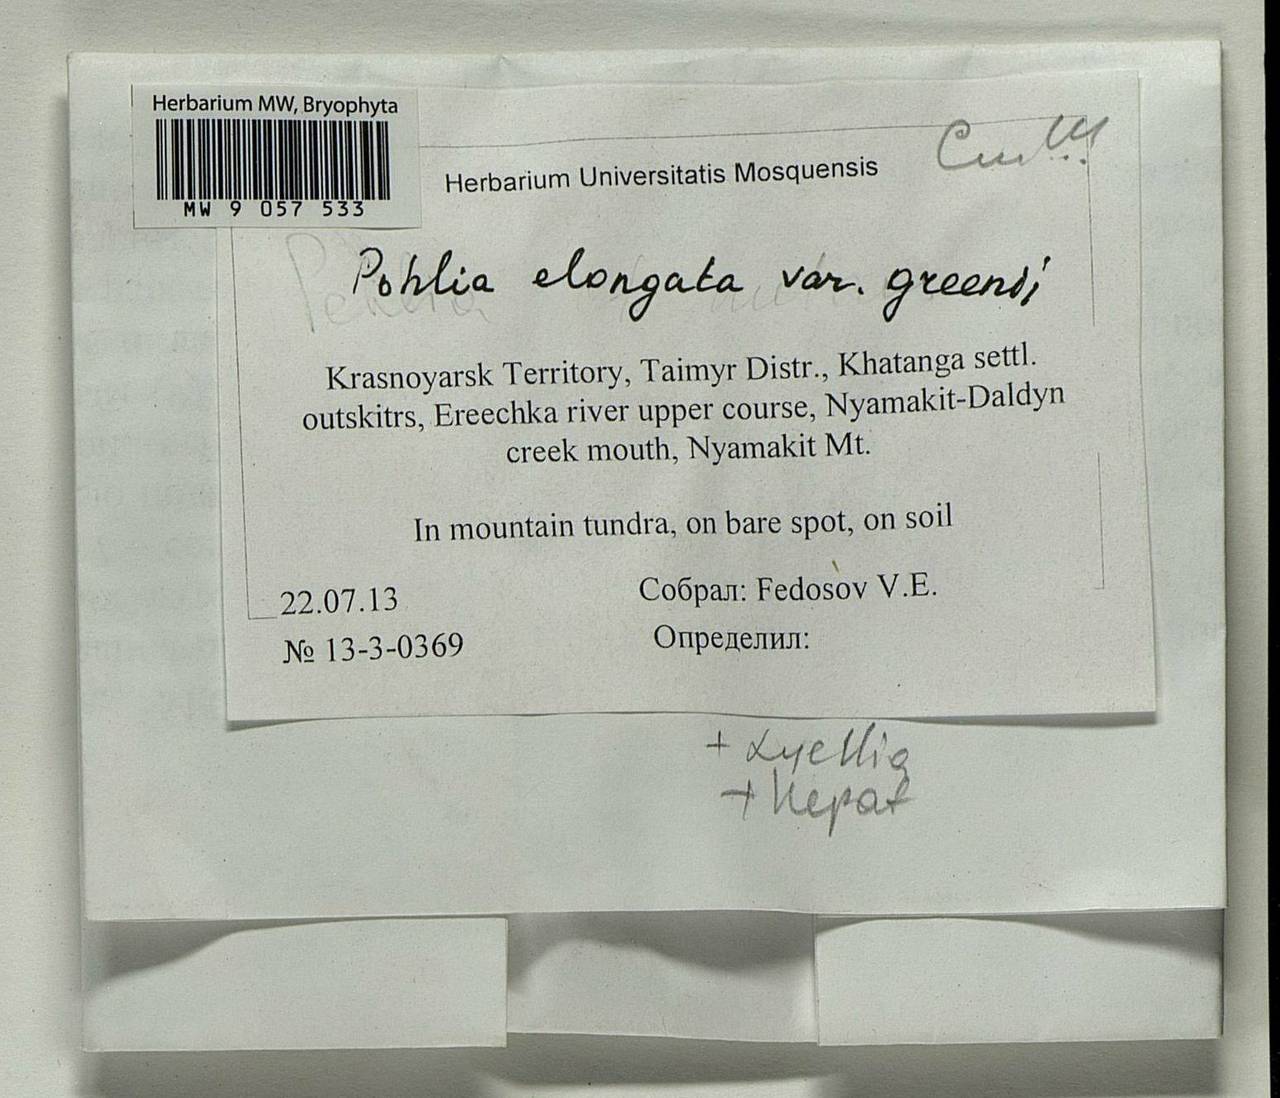 Herbarium MW, Bryophyta
MW 9 057 533
Herbarium Universitatis Mosquensis
Pohlia elongata var. greenii
Krasnoyarsk Territory, Taimyr Distr., Khatanga settl.
outskitrs, Ereechka river upper course, Nyamakit-Daldyn
creek mouth, Nyamakit Mt.
In mountain tundra, on bare spot, on soil
22.07.13
Собрал: Fedosov V.E.
№ 13-3-0369
Определил:
+ Lyellia
+ Hepat